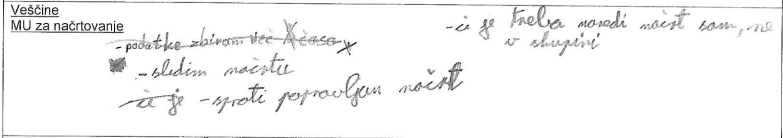 Veščine
MU za načrtovanje
- podatke zbiram več časa
- sledim načrtu
če je - sproti popravljam načrt
- če je treba naredi načrt sam, ne
v skupini